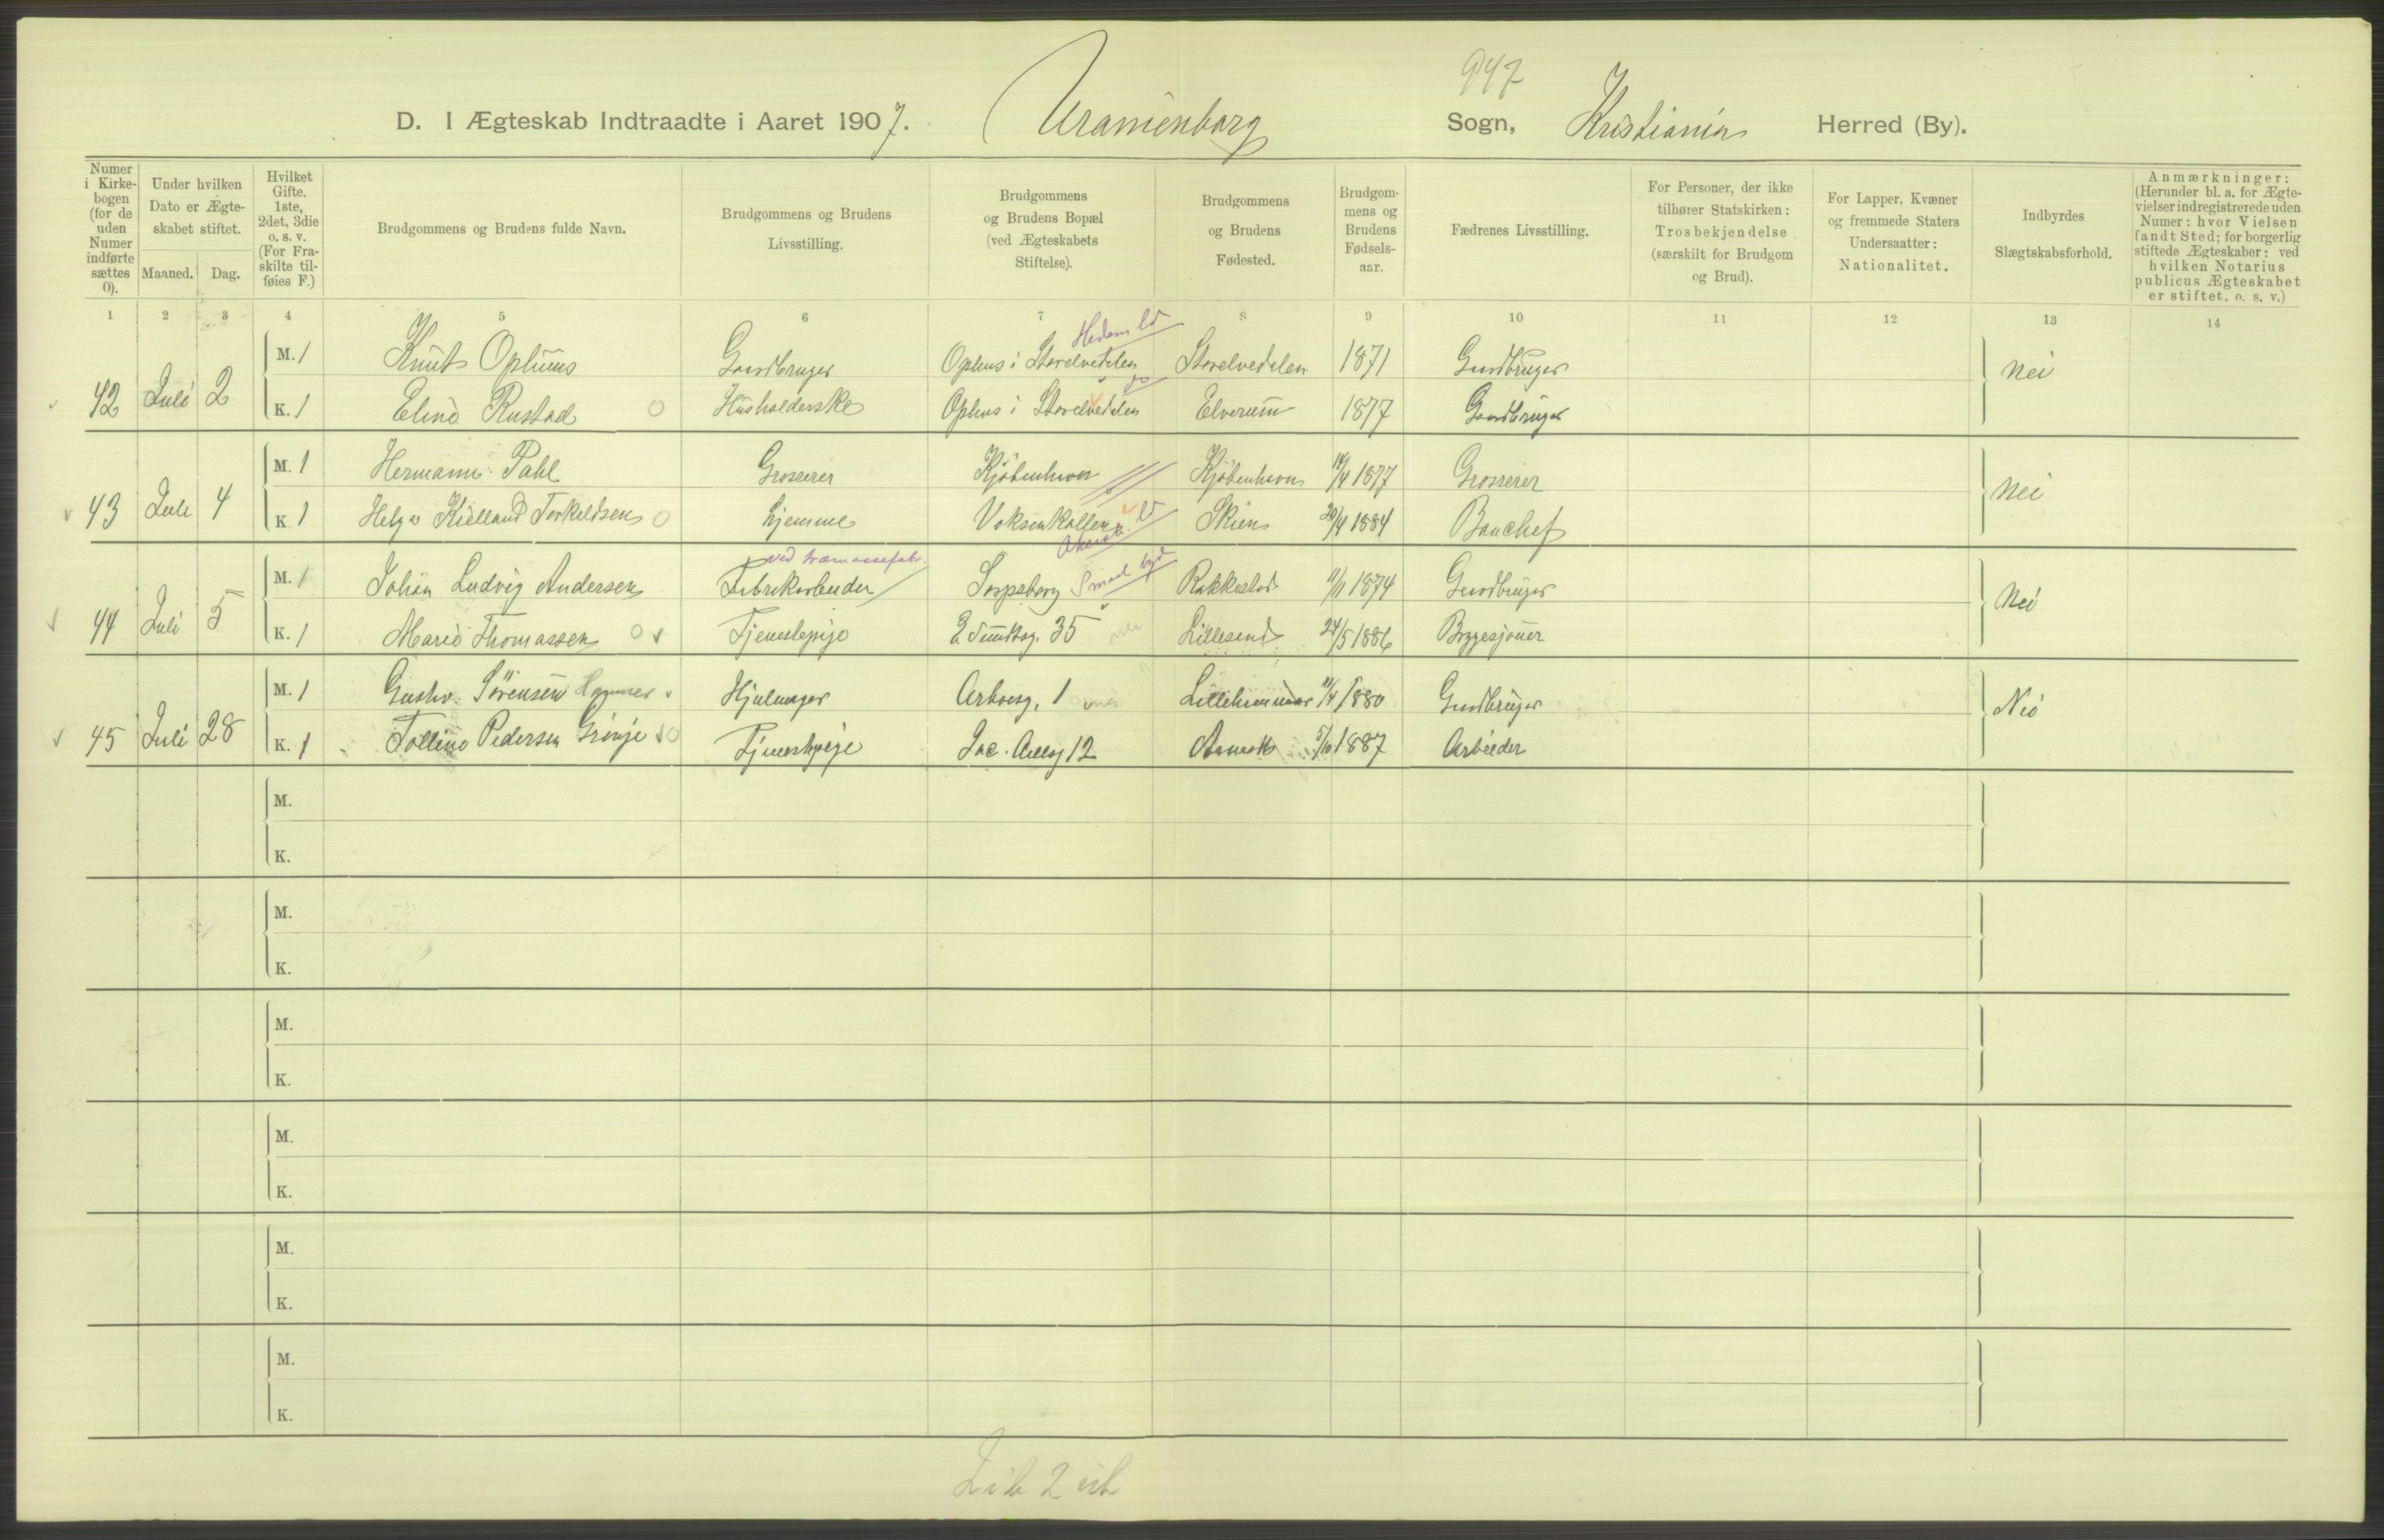 947
D. I Ægteskab Indtraadte i Aaret 1907. Uranienborg Sogn, Kristiania Herred (By).
Numer i Kirkebogen (for de uden Numer indførte sættes 0).
Under hvilken Dato er Ægteskabet stiftet.
Maaned. Dag.
Hvilket Gifte, 1ste, 2det, 3die o. s. v. (For Fraskilte tilføies F.)
Brudgommens og Brudens fulde Navn.
Brudgommens og Brudens Livsstilling.
Brudgommens og Brudens Bopæl (ved Ægteskabets Stiftelse).
Brudgommens og Brudens Fødested.
Brudgommens og Brudens Fødselsaar.
Fædrenes Livsstilling.
For Personer, der ikke tilhører Statskirken: Trosbekjendelse (særskilt for Brudgom og Brud).
For Lapper, Kvæner og fremmede Staters Undersaatter: Nationalitet.
Indbyrdes Slægtskabsforhold.
Anmærkninger: (Herunder bl. a. for Ægtevielser indregistrerede uden Numer: hvor Vielsen fandt Sted; for borgerlig stiftede Ægteskaber: ved hvilken Notarius publicus Ægteskabet er stiftet, o. s. v.)
1 2 3 4 5 6 7 8 9 10 11 12 13 14
Hedem ld
42 Juli 2 M. 1 Knut Ophuus Gaardbruger Ophus i Storelvedalen Storelvedalen 1871 Gaardbruger Nei
K. 1 Eline Rustad Husholderske Ophus i Storelvedalen Elverum 1877 Gaardbruger
43 Juli 4 M. 1 Hermann Pahl Grosserer Kjøbenhavn Kjøbenhavn 14/4 1877 Grosserer Nei
K. 1 Helga Kielland Torkildsen hjemme Voksenkollen ld Skien 20/4 1884 Banchef
ved træmassefabr. Akersh.
44 Juli 5 M. 1 Johan Ludvig Andersen Fabrikarbeider Sarpsborg Smaal byd Rakkestad 11/11 1874 Gaardbruger Nei
K. 1 Marie Thomassen Tjenestepige E Sundtsg. 35 Lillesand 24/5 1886 Bryggesjouer
45 Juli 28 M. 1 Gustav Sørensen Hjulmager Arbosg. 1 Lillehammer 11/4 1880 Gaardbruger Nei
K. 1 Pedersen Tjenestepige Jac. Aallsg 12 1887 Arbeider
M.
K.
M.
K.
M.
K.
M.
K.
M.
K.
M.
K.